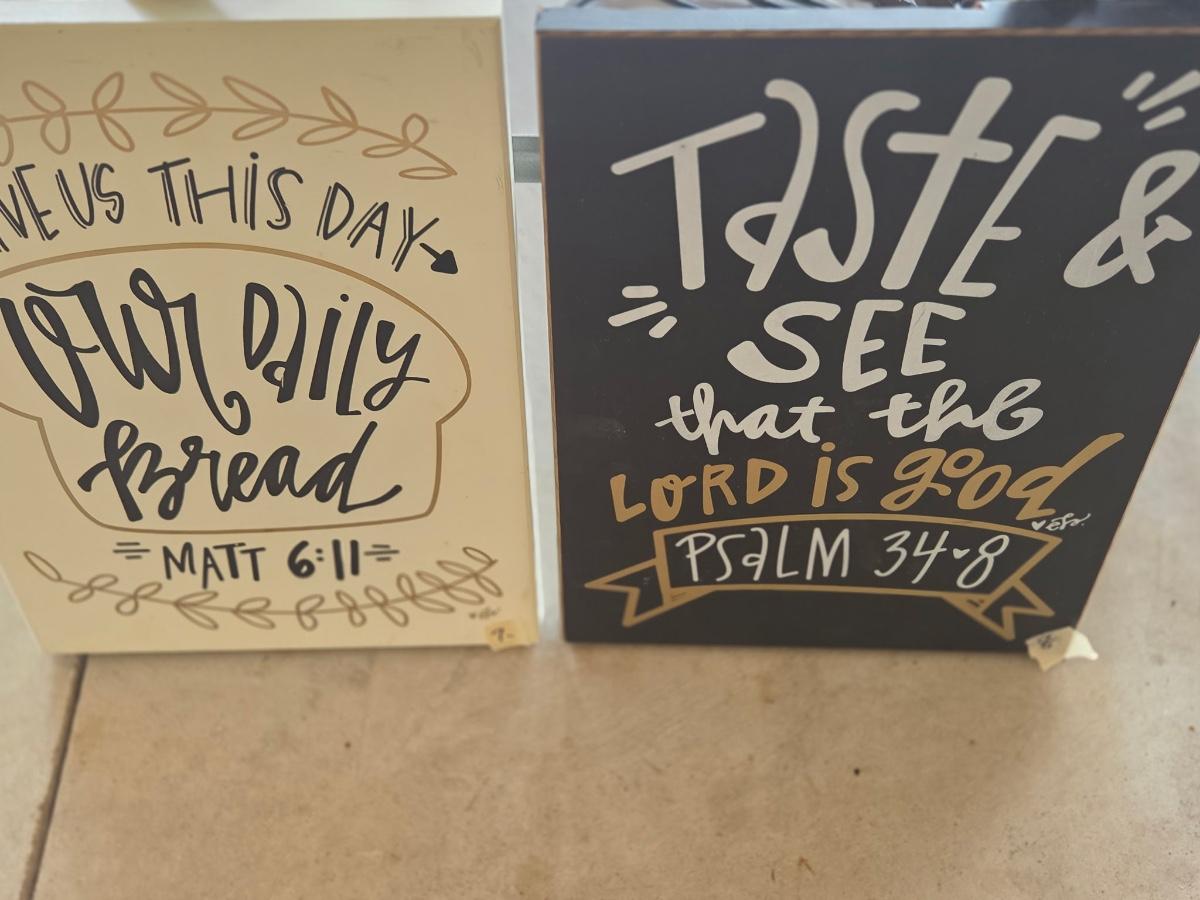 IVE US THIS DAY
OUR DAILY
Bread
MATT 6:11
7-
TASTE &
SEE
that the
LORD is good
PSALM 34♥8